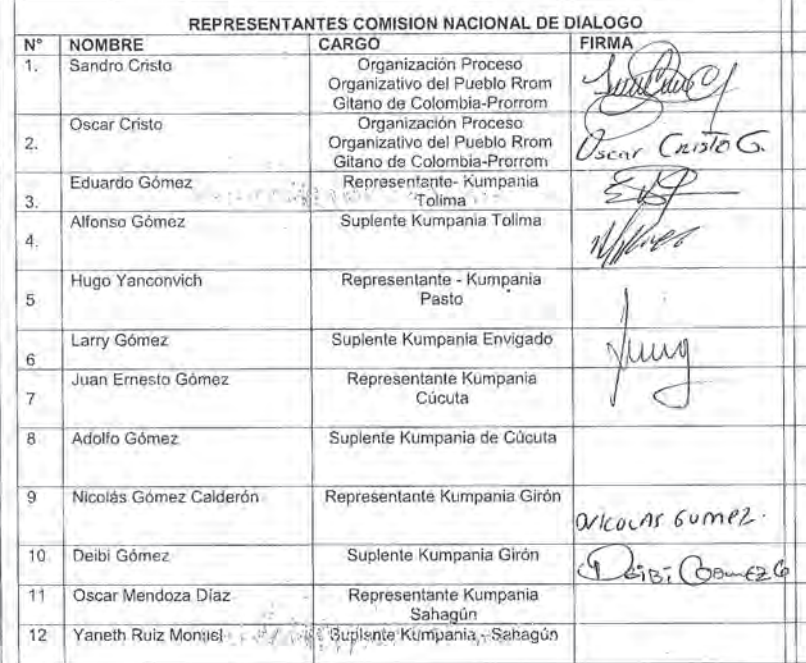 REPRESENTANTES COMISION NACIONAL DE DIALOGO
N° NOMBRE CARGO FIRMA
1. Sandro Cristo Organización Proceso
Organizativo del Pueblo Rrom
Gitano de Colombia-Prorrom
2. Oscar Cristo Organización Proceso
Organizativo del Pueblo Rrom
Gitano de Colombia-Prorrom
Oscar Cristo G.
3. Eduardo Gómez Representante- Kumpania
Tolima
4. Alfonso Gómez Suplente Kumpania Tolima
5 Hugo Yanconvich Representante - Kumpania
Pasto
6 Larry Gómez Suplente Kumpania Envigado
7 Juan Ernesto Gómez Representante Kumpania
Cúcuta
8 Adolfo Gómez Suplente Kumpania de Cúcuta
9 Nicolás Gómez Calderón Representante Kumpania Girón
Nicolas Gumez.
10 Deibi Gómez Suplente Kumpania Girón
Deibi Gomez G
11 Oscar Mendoza Díaz Representante Kumpania
Sahagún
12 Yaneth Ruiz Suplente Kumpania - Sahagún